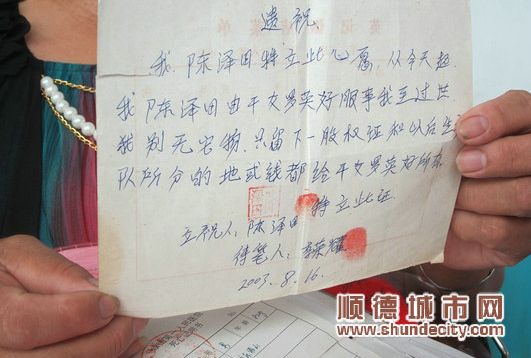 遗祝
我 陈泽田特立此心愿，从今天起
我陈泽田由干女男英好服事我至过世
我别无它物，只留下一股权证和以后生
队所分的地或钱都给干女男英好所
立祝人：陈泽田 特立此证
待笔人：荣耀
2003.8.16.
顺德城市网
www.shundecity.com